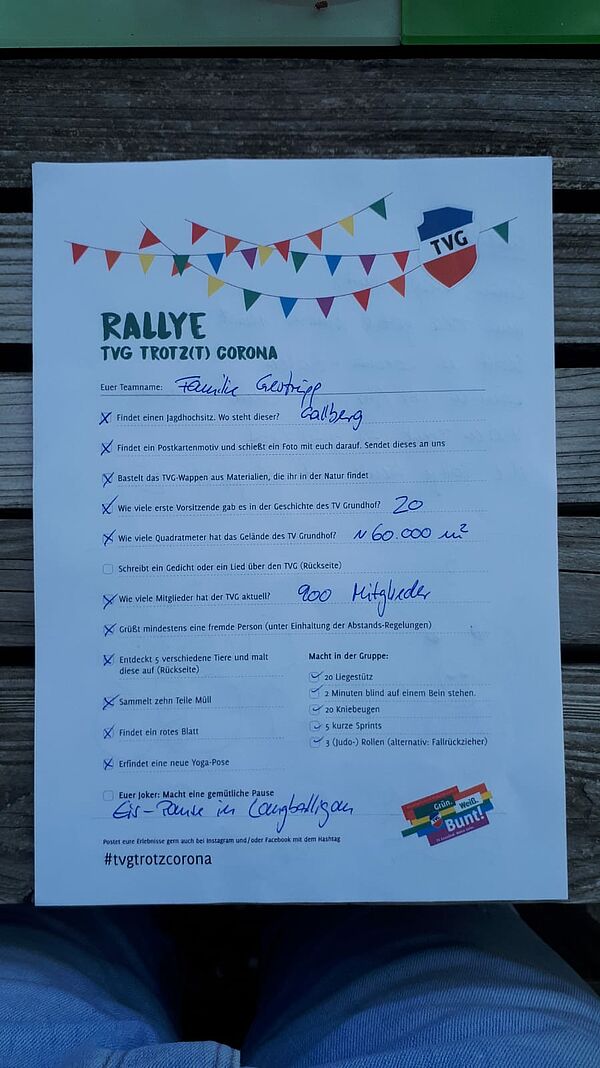 TVG
RALLYE
TVG TROTZ(T) CORONA
Euer Teamname: Familie
Findet einen Jagdhochsitz. Wo steht dieser? Callberg
Findet ein Postkartenmotiv und schießt ein Foto mit euch darauf. Sendet dieses an uns
Bastelt das TVG-Wappen aus Materialien, die ihr in der Natur findet
Wie viele erste Vorsitzende gab es in der Geschichte des TV Grundhof? 20
Wie viele Quadratmeter hat das Gelände des TV Grundhof? ~ 60.000 m²
Schreibt ein Gedicht oder ein Lied über den TVG (Rückseite)
Wie viele Mitglieder hat der TVG aktuell? 900 Mitglieder
Grüßt mindestens eine fremde Person (unter Einhaltung der Abstands-Regelungen)
Entdeckt 5 verschiedene Tiere und malt
diese auf (Rückseite)
Sammelt zehn Teile Müll
Findet ein rotes Blatt
Erfindet eine neue Yoga-Pose
Macht in der Gruppe:
20 Liegestütz
2 Minuten blind auf einem Bein stehen.
20 Kniebeugen
5 kurze Sprints
3 (Judo-) Rollen (alternativ: Fallrückzieher)
Euer Joker: Macht eine gemütliche Pause
Eis-Pause in Langballigau
Postet eure Erlebnisse gern auch bei Instagram und/oder Facebook mit dem Hashtag
#tvgtrotzcorona
Grün.
Weiß.
Bunt!